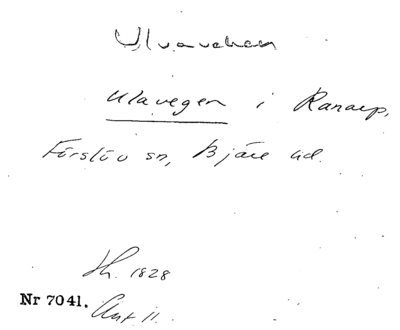 Ulvavehan
Ulavegen i Ranarp,
Förslöv sn, Bjäre hd.
Sh. 1828
Nr 7041.
Ant 11.